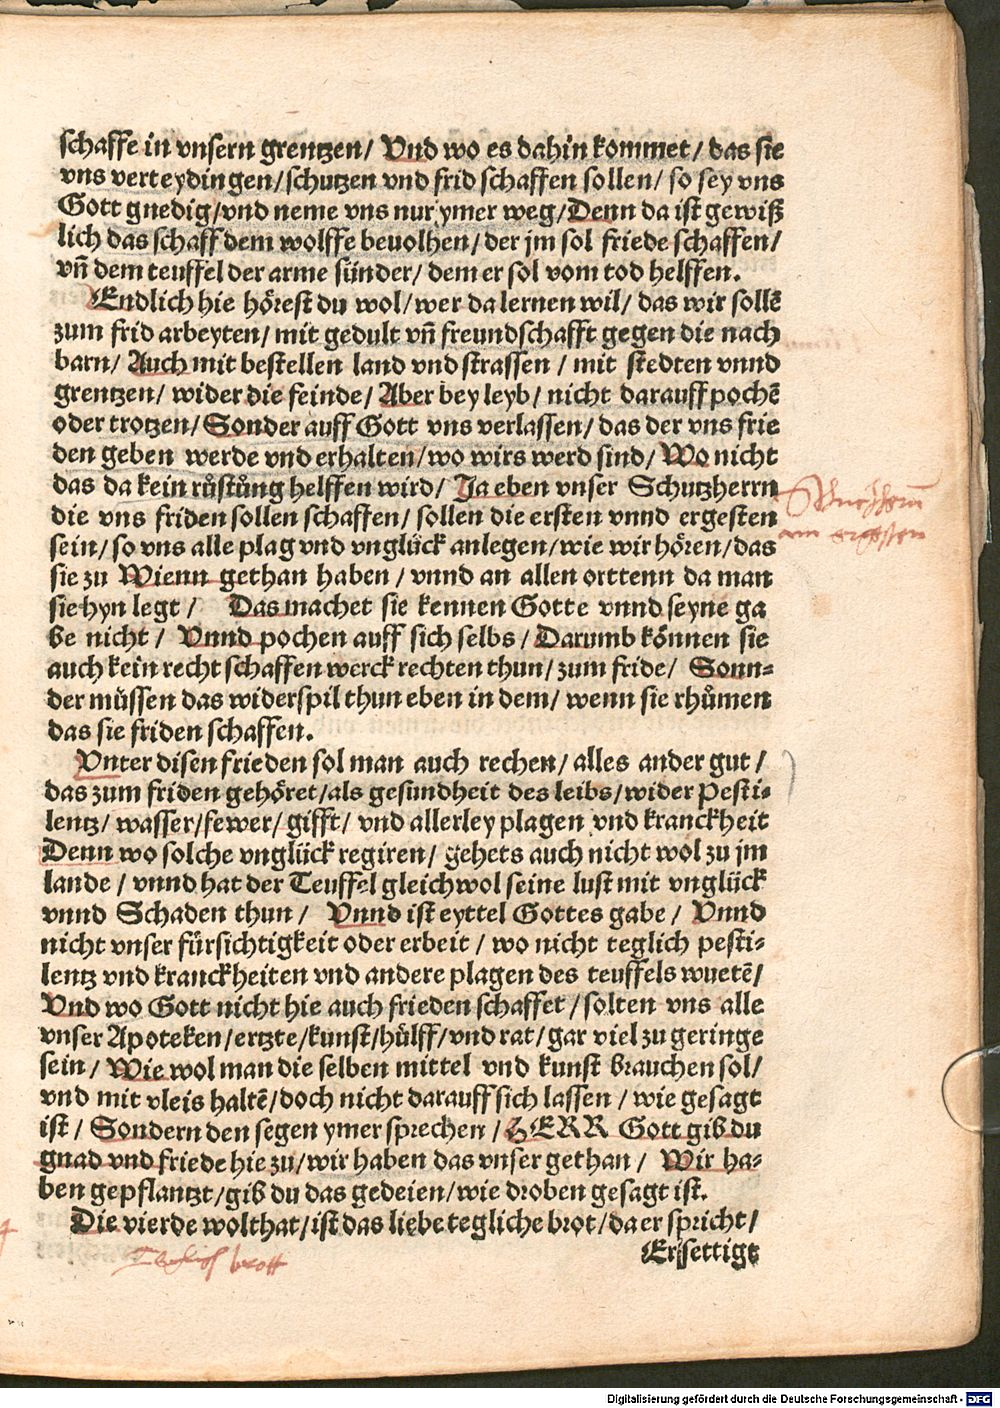 schaffe in vnsern grentzen/ Vnd wo es dahin kommet/ das sie
vns verteydingen/schutzen vnd frid schaffen sollen/ so sey vns
Gott gnedig/vnd neme vns nur ymer weg/Denn da ist gewiß
lich das schaff dem wolffe beuolhen/der jm sol friede schaffen/
vñ dem teuffel der arme sünder/ dem er sol vom tod helffen.
Endlich hie hörest du wol/wer da lernen wil/ das wir sollẽ
zum frid arbeyten/ mit gedult vñ freundschafft gegen die nach
barn/ Auch mit bestellen land vnd strassen / mit stedten vnnd
grentzen/ wider die feinde/ Aber bey leyb/ nicht darauff pochẽ
oder trotzen/Sonder auff Gott vns verlassen/das der vns frie
den geben werde vnd erhalten/wo wirs werd sind/ Wo nicht
das da kein růstůng helffen wird/ Ja eben vnser Schutzherrn
die vns friden sollen schaffen/ sollen die ersten vnnd ergesten
sein/so vns alle plag vnd vnglück anlegen/wie wir hören/das
sie zu Wienn gethan haben / vnnd an allen orttenn da man
sie hyn legt / Das machet sie kennen Gotte vnnd seyne ga
be nicht/ Vnnd pochen auff sich selbs/ Darumb können sie
auch kein recht schaffen werck rechten thun/zum fride/ Sonn=
der müssen das widerspil thun eben in dem/ wenn sie rhůmen
das sie friden schaffen.
Vnter disen frieden sol man auch rechen/ alles ander gut /
das zum friden gehöret/als gesundheit des leibs/wider Pesti=
lentz/ wasser/fewer/ gifft/ vnd allerley plagen vnd kranckheit
Denn wo solche vnglück regiren/ gehets auch nicht wol zu jm
lande / vnnd hat der Teuffel gleichwol seine lust mit vnglück
vnnd Schaden thun / Vnnd ist eyttel Gottes gabe / Vnnd
nicht vnser fürsichtigkeit oder erbeit / wo nicht teglich pesti=
lentz vnd kranckheiten vnd andere plagen des teuffels wuetẽ/
Vnd wo Gott nicht hie auch frieden schaffet / solten vns alle
vnser Apoteken/ertzte/kunst/hülff/vnd rat/gar viel zu geringe
sein/ Wie wol man die selben mittel vnd kunst brauchen sol/
vnd mit vleis haltẽ/doch nicht darauff sich lassen / wie gesagt
ist/ Sondern den segen ymer sprechen / HERR Gott gib du
gnad vnd friede hie zu/wir haben das vnser gethan / Wir ha=
ben gepflantzt/gib du das gedeien/wie droben gesagt ist.
Die vierde wolthat/ist das liebe tegliche brot/da er spricht/
Ersettigt
Schutzherrn
am ergesten
Teglich brott
4
Digitalisierung gefördert durch die Deutsche Forschungsgemeinschaft - DFG